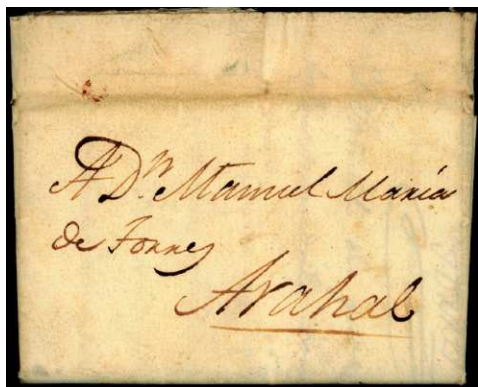 A Dn. Manuel María
de Torres
Arahal